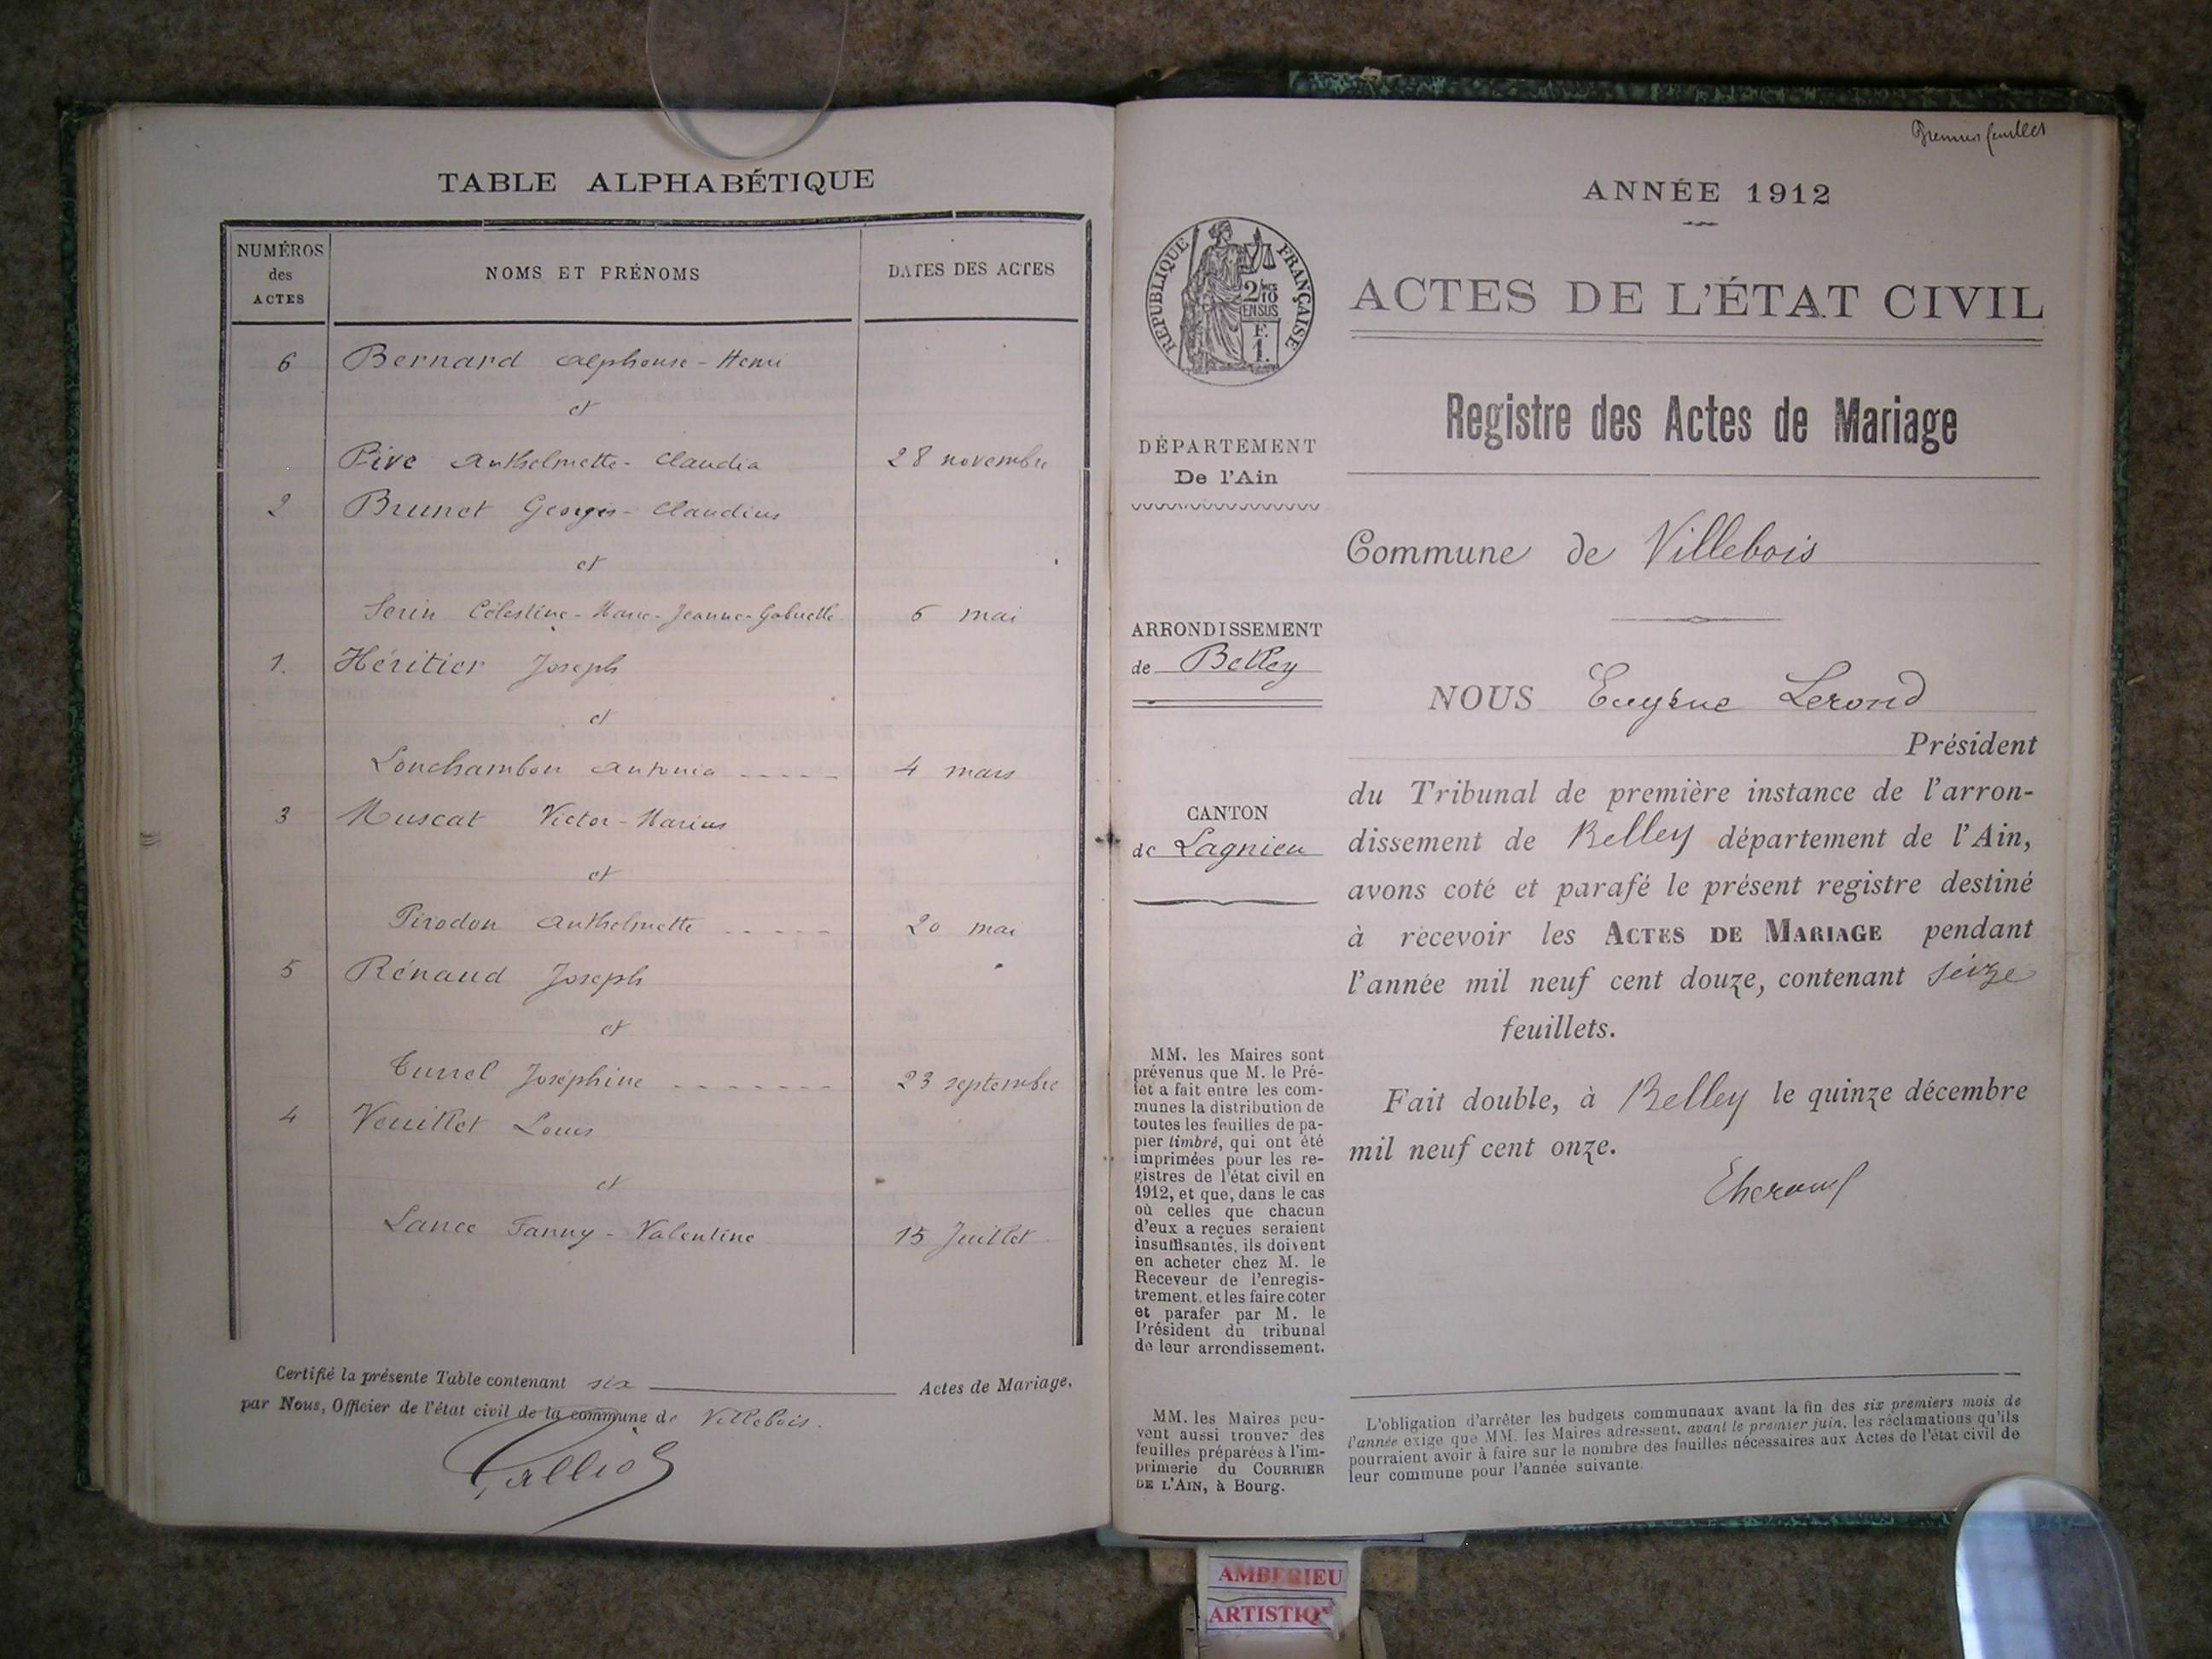 TABLE ALPHABÉTIQUE
NUMÉROS des ACTES
NOMS ET PRÉNOMS
DATES DES ACTES
6 Bernard Alphonse-Henri
et
Pive Anthelmette-Claudia 28 novembre
2 Brunet Georges-Claudius
et
Serin Célestine-Marie-Jeanne-Gabrielle 6 mai
1. Héritier Joseph
et
Lonchambon Antonia ----- 4 mars
3 Muscat Victor-Marius
et
Pirodon Anthelmette ----- 20 mai
5 Rénaud Joseph
et
Turrel Joséphine ------- 23 septembre
4 Veuillet Louis
et
Lance Fanny-Valentine 15 Juillet
Certifié la présente Table contenant six Actes de Mariage,
par Nous, Officier de l'état civil de la commune de Villebois.
Premier feuillet
ANNÉE 1912
RÉPUBLIQUE FRANÇAISE
2/10
EN SUS
F.
1.
ACTES DE L'ÉTAT CIVIL
Registre des Actes de Mariage
DÉPARTEMENT
De l'Ain
Commune de Villebois
ARRONDISSEMENT
de Belley
CANTON
de Lagnieu
NOUS Eugène Lerond
Président
du Tribunal de première instance de l'arron-
dissement de Belley département de l'Ain,
avons coté et parafé le présent registre destiné
à recevoir les ACTES DE MARIAGE pendant
l'année mil neuf cent douze, contenant seize
feuillets.
Fait double, à Belley le quinze décembre
mil neuf cent onze.
MM. les Maires sont
prévenus que M. le Pré-
fet a fait entre les com-
munes la distribution de
toutes les feuilles de pa-
pier timbré, qui ont été
imprimées pour les re-
gistres de l'état civil en
1912, et que, dans le cas
où celles que chacun
d'eux a reçues seraient
insuffisantes, ils doivent
en acheter chez M. le
Receveur de l'enregis-
trement, et les faire coter
et parafer par M. le
Président du tribunal
de leur arrondissement.
MM. les Maires peu-
vent aussi trouver des
feuilles préparées à l'im-
primerie du COURRIER
DE L'AIN, à Bourg.
L'obligation d'arrêter les budgets communaux avant la fin des six premiers mois de
l'année exige que MM. les Maires adressent, avant le premier juin, les réclamations qu'ils
pourraient avoir à faire sur le nombre des feuilles nécessaires aux Actes de l'état civil de
leur commune pour l'année suivante.
AMBERIEU
ARTISTIQ